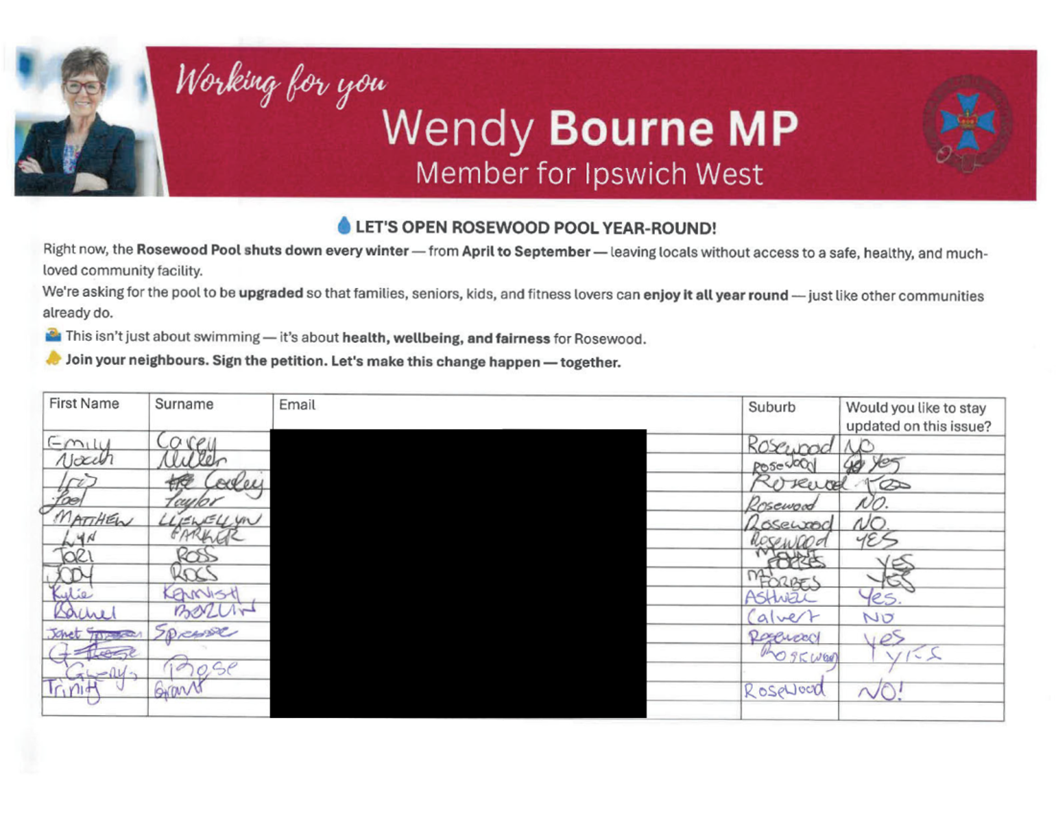 Working for you
Wendy Bourne MP
Member for Ipswich West
LET'S OPEN ROSEWOOD POOL YEAR-ROUND!
Right now, the Rosewood Pool shuts down every winter — from April to September — leaving locals without access to a safe, healthy, and much-
loved community facility.
We're asking for the pool to be upgraded so that families, seniors, kids, and fitness lovers can enjoy it all year round — just like other communities
already do.
This isn't just about swimming — it's about health, wellbeing, and fairness for Rosewood.
Join your neighbours. Sign the petition. Let's make this change happen — together.
First Name Surname Email Suburb Would you like to stay
updated on this issue?
Emily Carey Rosewood NO
Miller Rosewood Yes
Iris Cooley Rosewood Yes
Joel Taylor Rosewood NO.
MATTHEW LLEWELLYN Rosewood NO.
LYN PARKER Rosewood YES
TORI ROSS MOUNT FORBES YES
JODY ROSS MT FORBES YES
Kylie Yes.
Rachel Calvert NO
Janet Rosewood yes
Rose Rosewood YES
Trinity Grant Rosewood NO!